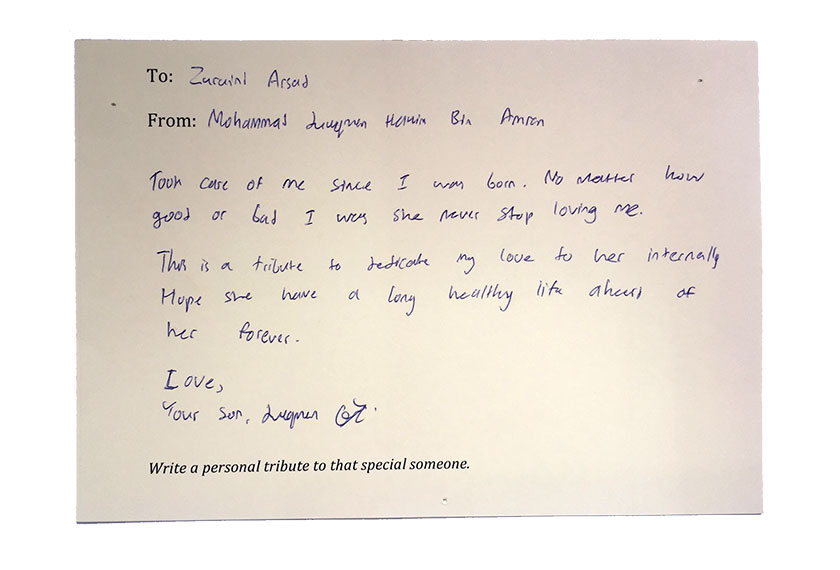 To: Zuraini Arsad
From: Mohammad Luqman Hakim Bin Amran
Took care of me since I was born. No matter how
good or bad I was she never stop loving me.
This is a tribute to dedicate my love to her internally
Hope she have a long healthy life ahead of
her forever.
Love,
Your Son, Luqman
Write a personal tribute to that special someone.